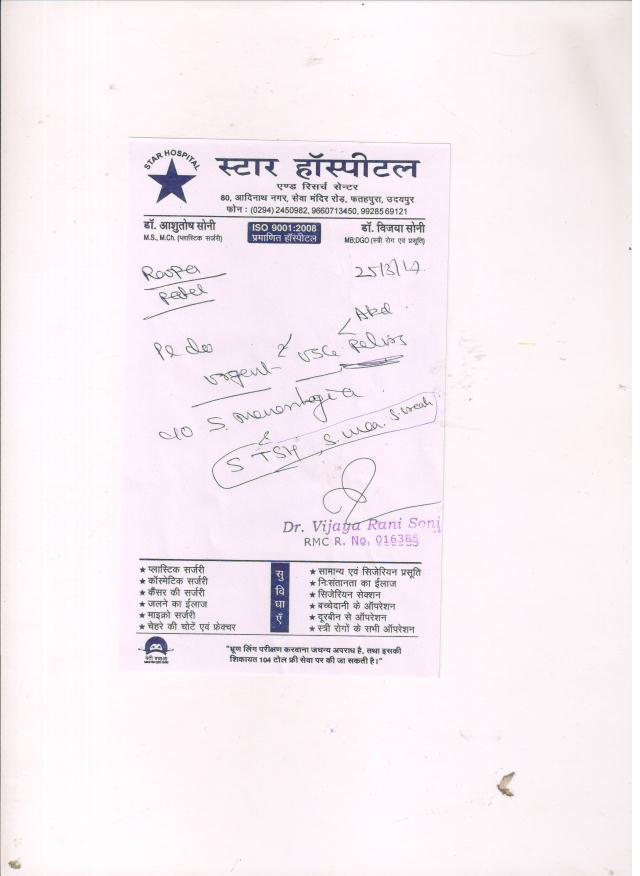 STAR HOSPITAL
स्टार हॉस्पीटल
एण्ड रिसर्च सेन्टर
80, आदिनाथ नगर, सेवा मंदिर रोड़, फतहपुरा, उदयपुर
फोन : (0294) 2450982, 9660713450, 9928569121
डॉ. आशुतोष सोनी
M.S., M.Ch. (प्लास्टिक सर्जरी)
ISO 9001:2008
प्रमाणित हॉस्पीटल
डॉ. विजया सोनी
MB;DGO (स्त्री रोग एवं प्रसूति)
Patel
25/3/
Pl do
Urgent USG Pelvis
S. Menorrhagia
S TSH
Dr. Vijaya Rani Soni
RMC R. No. 016385
★ प्लास्टिक सर्जरी
★ कॉस्मेटिक सर्जरी
★ कैंसर की सर्जरी
★ जलने का ईलाज
★ माइक्रो सर्जरी
★ चेहरे की चोटें एवं फ्रेक्चर
सुविधाएँ
★ सामान्य एवं सिजेरियन प्रसूति
★ निःसंतानता का ईलाज
★ सिजेरियन सेक्शन
★ बच्चेदानी के ऑपरेशन
★ दूरबीन से ऑपरेशन
★ स्त्री रोगों के सभी ऑपरेशन
"भ्रूण लिंग परीक्षण करवाना जघन्य अपराध है, तथा इसकी
शिकायत 104 टोल फ्री सेवा पर की जा सकती है।"